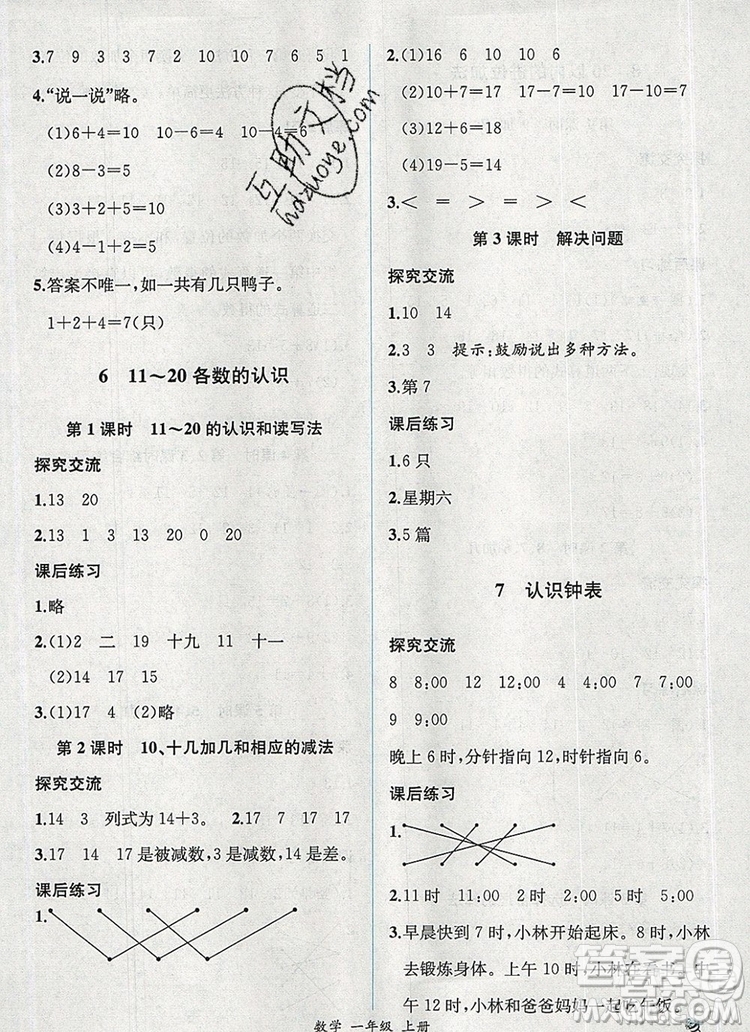 3.7 9 3 3 7 2 10 10 7 6 5 1
4.“说一说”略。
(1)6+4=10 10-6=4 10-4=6
(2)8-3=5
(3)3+2+5=10
(4)4-1+2=5
5.答案不唯一,如一共有几只鸭子。
1+2+4=7(只)
6 11～20各数的认识
第1课时 11～20的认识和读写法
探究交流
1.13 20
2.13 1 3 13 20 0 20
课后练习
1.略
2.(1)2 二 19 十九 11 十一
(2)14 17 15
3.(1)17 4 (2)略
第2课时 10、十几加几和相应的减法
探究交流
1.14 3 列式为14+3。 2.17 7 17 17
3.17 14 17是被减数,14是差。
课后练习
1.
2.(1)16 6 10 10
(2)10+7=17 17-10=7
(3)12+6=18
(4)19-5=14
3.< = > = > <
第3课时 解决问题
探究交流
1.10 14
2.3 3 提示:鼓励说出多种方法。
3.第7
课后练习
1.6只
2.星期六
3.5篇
7 认识钟表
探究交流
8 8:00 12 12:00 4 4:00
9 9:00
晚上6时,分针指向12,时针指向6。
课后练习
1.
2.11时 11:00 2时 2:00 5时 5:00
3.早晨快到7时,小林开始起床。8时,小林
去锻炼身体。上午10时,小林在看书。下
午12时,小林和爸爸妈妈一起吃午饭。
数学 一年级 上册
互助文档
hdzuoye.com
答案圈